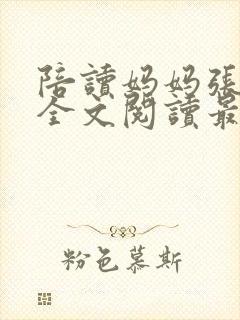 陪讀妈妈張
全文閱讀最
粉色慕斯